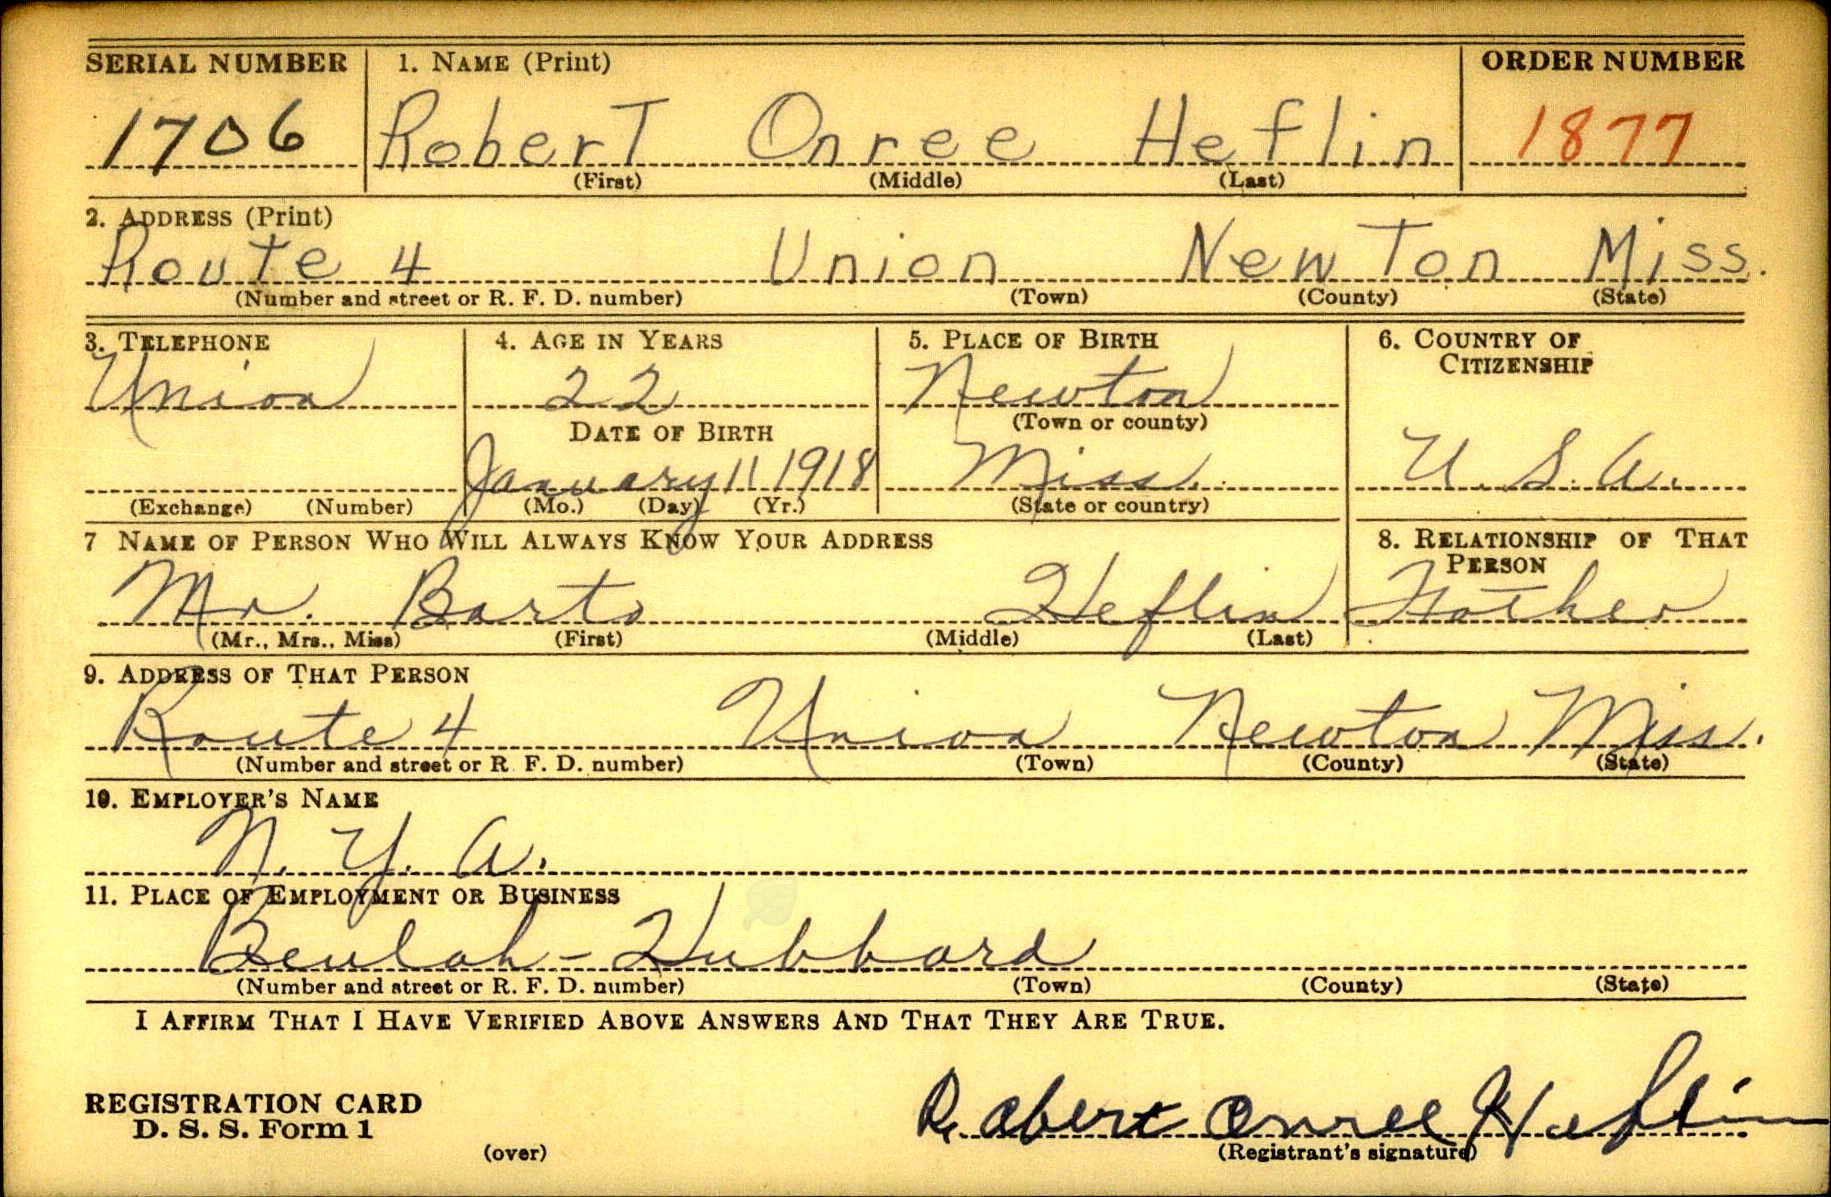 SERIAL NUMBER 1. NAME (Print) ORDER NUMBER
1706 Robert Onree Heflin 1877
(First) (Middle) (Last)
2. ADDRESS (Print)
Route 4 Union Newton Miss.
(Number and street or R. F. D. number) (Town) (County) (State)
3. TELEPHONE 4. AGE IN YEARS 5. PLACE OF BIRTH 6. COUNTRY OF
CITIZENSHIP
Union 22 Newton
(Town or county)
DATE OF BIRTH
January 11 1918 Miss. U. S. A.
(Exchange) (Number) (Mo.) (Day) (Yr.) (State or country)
7 NAME OF PERSON WHO WILL ALWAYS KNOW YOUR ADDRESS 8. RELATIONSHIP OF THAT
PERSON
Mr. Barto Heflin Father
(Mr., Mrs., Miss) (First) (Middle) (Last)
9. ADDRESS OF THAT PERSON
Route 4 Union Newton Miss.
(Number and street or R F. D. number) (Town) (County) (State)
10. EMPLOYER'S NAME
N. Y. A.
11. PLACE OF EMPLOYMENT OR BUSINESS
Beulah - Hubbard
(Number and street or R. F. D. number) (Town) (County) (State)
I AFFIRM THAT I HAVE VERIFIED ABOVE ANSWERS AND THAT THEY ARE TRUE.
REGISTRATION CARD
D. S. S. Form 1
Robert Onree Heflin
(over) (Registrant's signature)